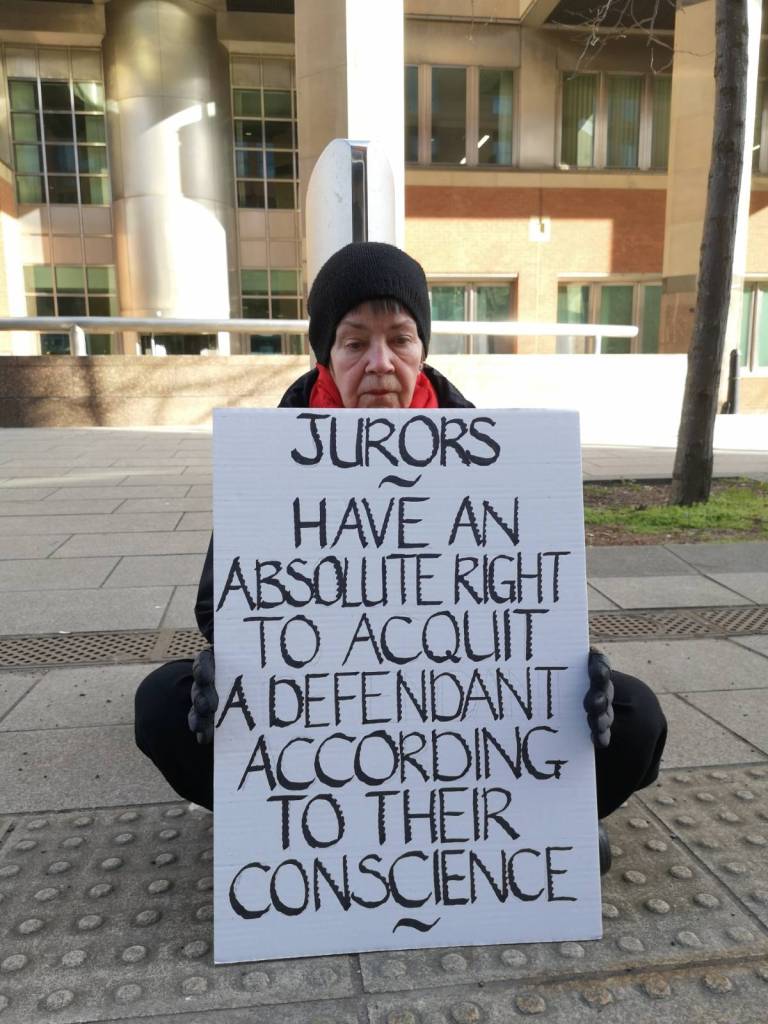 JURORS
~
HAVE AN
ABSOLUTE RIGHT
TO ACQUIT
A DEFENDANT
ACCORDING
TO THEIR
CONSCIENCE
~